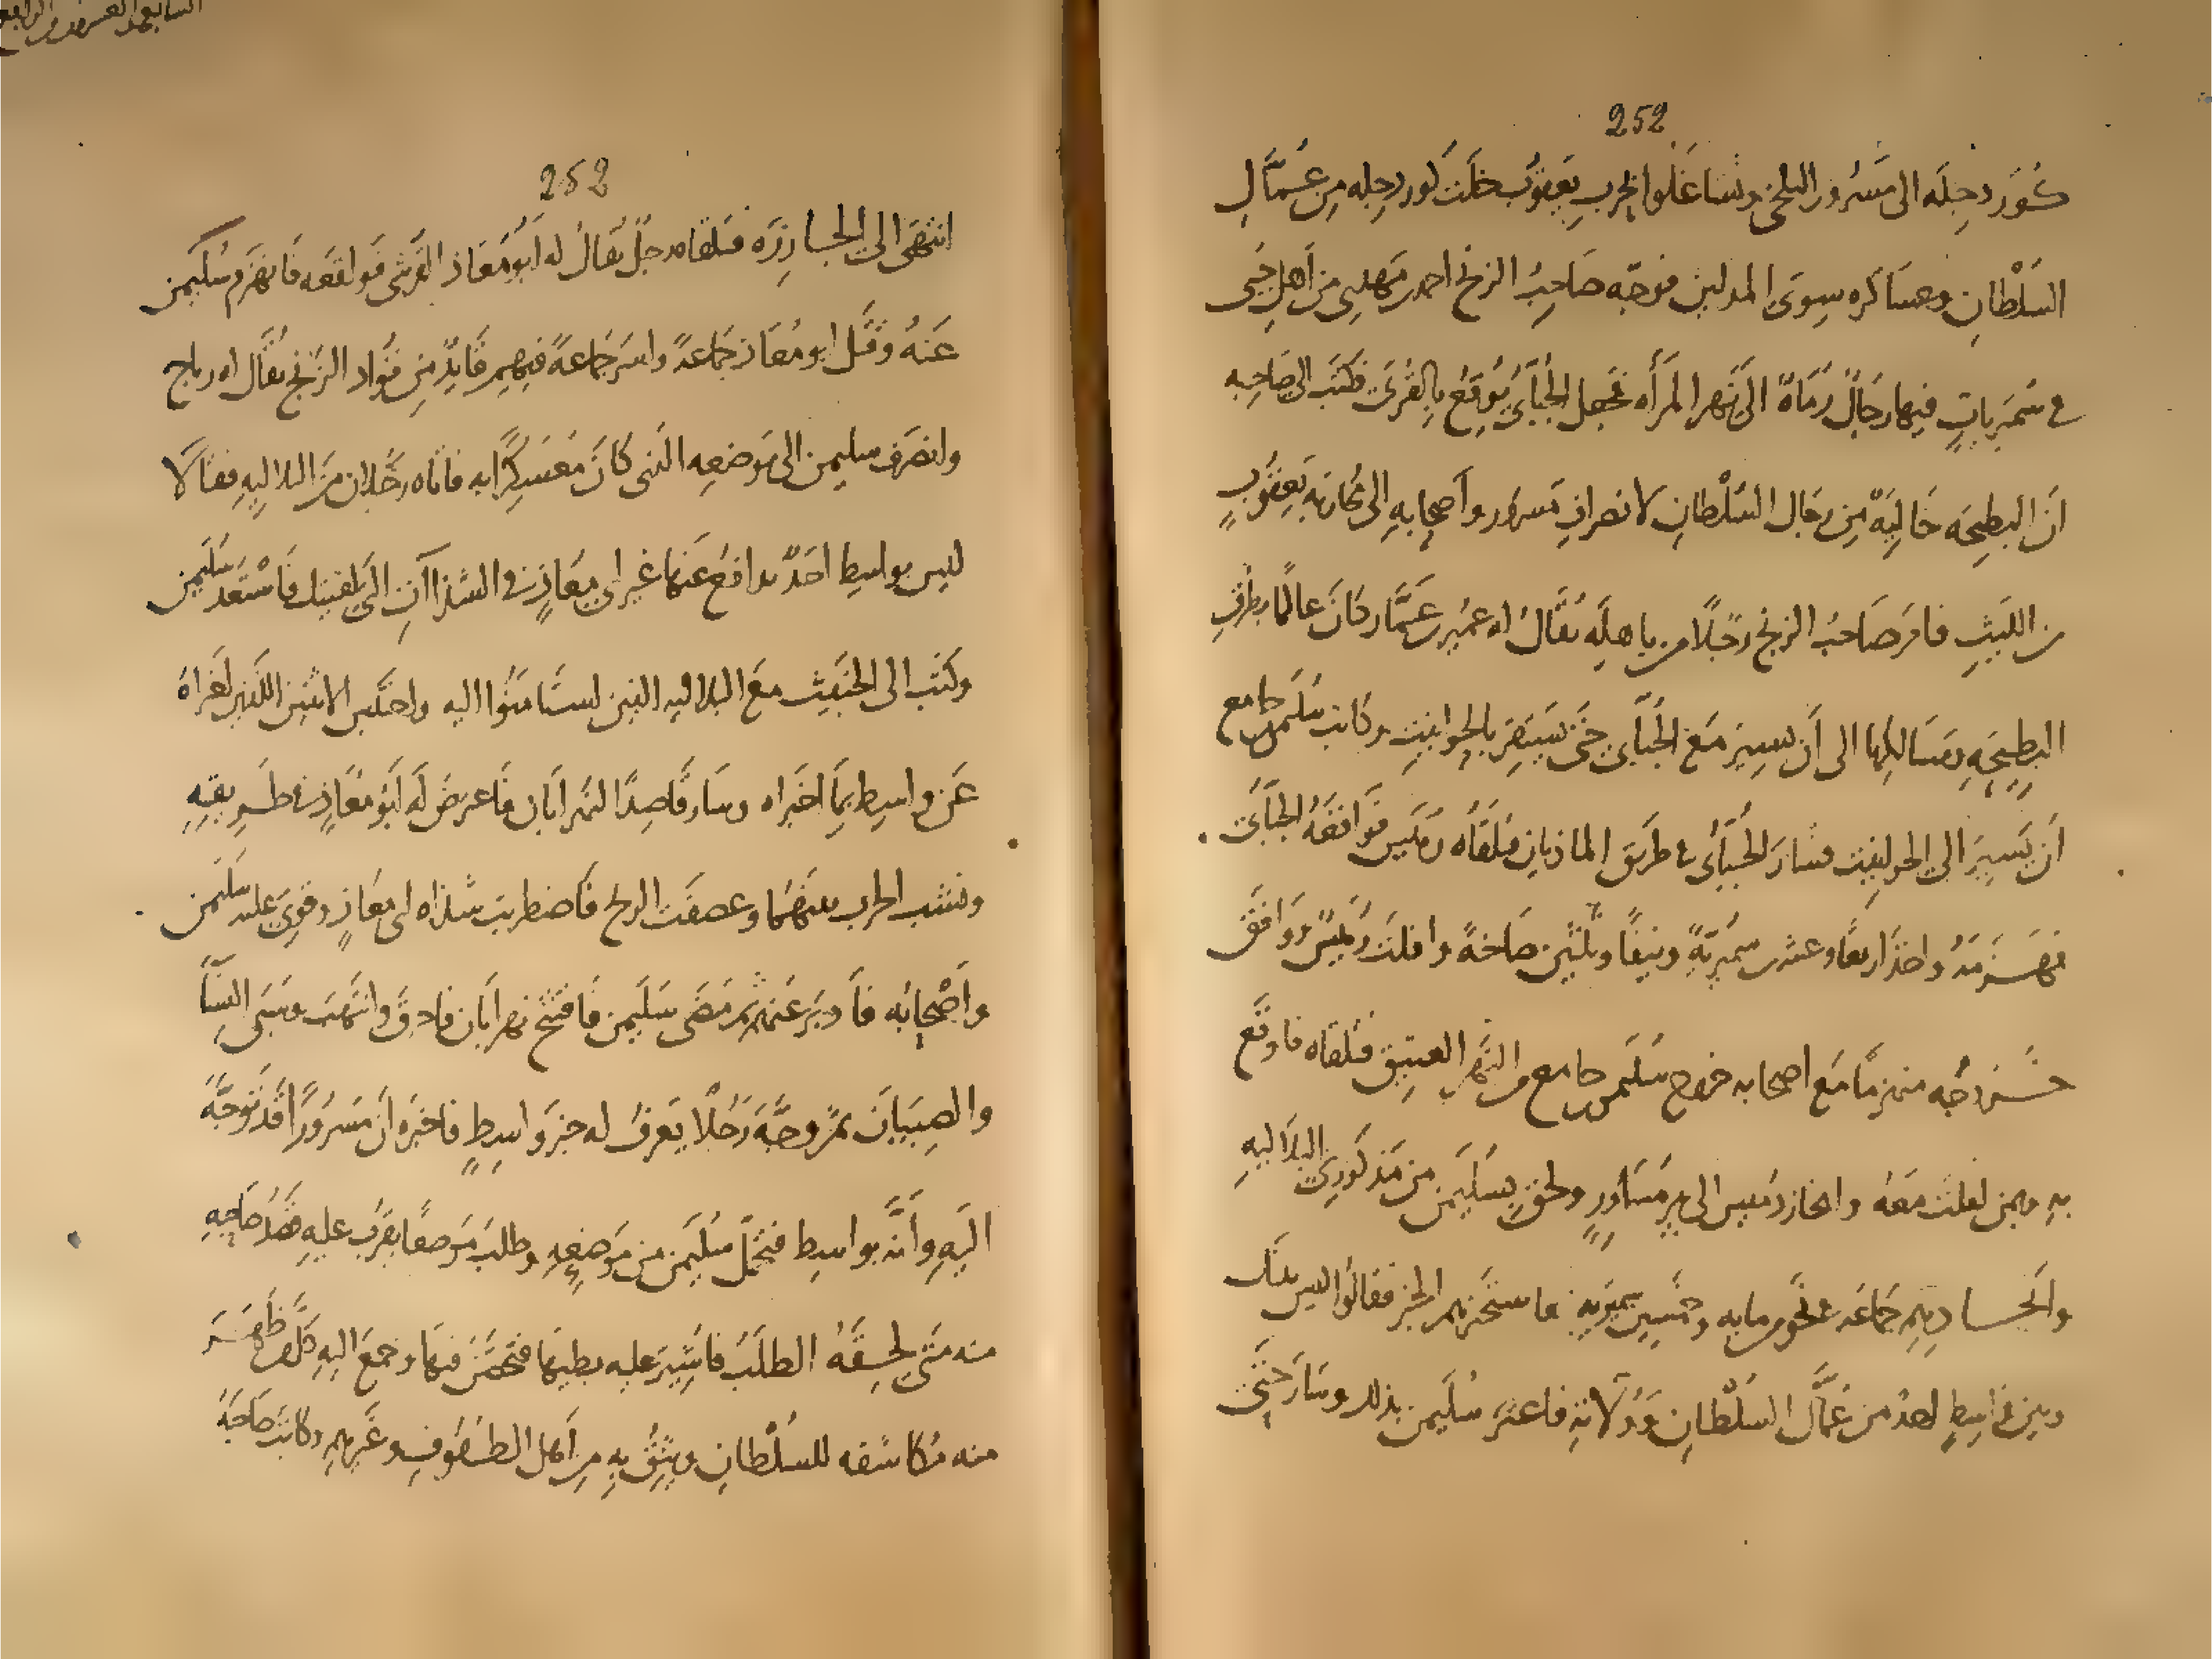 252
كُوَر دجلَه الى مَسْرُور البلخى وتشاغَلوا بحَربِ يَعقوُب خلَت كور دجله مِن عُمّالِ
السّلْطانِ وعسَاكره سِوىَ المدلين فوجّه صَاحِبُ الزنج احمد بن مَهدى من اَهل جُبى
فى سُمَيريات فيها رجَالٌ رُمَاةٌ الى نَهر المَرأَه فجعل الجُبّآىُ يُوقعُ بالقُرىَ فكتَبَ الى صَاحِبه
اَن البطيحَه خَاليَةٌ مِن رجال السَّلْطانِ لانصرافِ مَسرُور وأصحابِه اِلى مُحَاربَه يَعقُوبِ
بن اللَيثِ فامَر صَاحبُ الزنج رجَلاً من باهلَه يُقَالُ له عُمَير بن عَمّار كانَ عَالمًا بطُرقِ
البطِيحَه ومَسَالكِها الى اَن يَسِيرَ مَعَ الجُبآئِ حَتىَ يَستقرَ بالحوانِيتِ وكاتبَ سُلَيمن بن جامع
اَن يَسِيرَ الىَ الحوانيت فسَارَ الجُبّآئُ فى طريق الماذيانِ فتلَقاه رُمَيس فوَاقعَهُ الجُبّآئُ
فهَزمَهُ واخذ اربعًا وعشرين سُميريّةً ونيفًا وثلثين صَلغةً وافلتَ رُمَيْسٌ ووَافقَ
خُرُوجُه منهزمًا مَع اصحابه خروج سُلَيمَن بن جامع من النَهر العتيق فتلقاه فاوقَع
بهِ وبمن افلت مَعَه وانحاز رُمَيس الى بَر مُسَاورٍ ولحقَ بسُلَيمن من مَذكورى البلاَليهِ
وانجادهم جَمَاعَه فى نحو من مايه وخمَسينَ سميريهً فاستخبرهم الخبرَ فقالوُا ليس بينَك
وبين وَاسِطٍ احدُ من عُمَّال السُلْطانِ ووُلاَتهِ فاغتر سُلَيمن بذلك وسَارَ حتَى
252
انتهَى الى الجازِرَه فتلقاه رجلٌ يُقالُ له اَبوُ مُعَاذ القرشى فَواقعَه فَانهزَم سُليمن
عَنهُ وقَتَل ابو مُعَاذ جماعةً واسَر جَماعةً فيهِم قَايدٌ مِن قوُاد الزّنج يُقَال له رياح
وانصَرف سليمن الى مَوضعِه الذى كانَ مُعسكِرًا به فاتَاه رجُلان من البلاليهِ فقالاَ
ليس بواسِط احَدٌ يدافعُ عَنها غير ابى معَاذٍ فى الشذاآتِ التى لقيتك فَاستعَد سُليمن
وكتَب الى الخَبيث مَعَ البلاليه الذين استَامَنوُا اليه واحتبس الاثنين اللذين اخَبراهُ
عَن واسِط بمَا اخبَراه وسَار قَاصِدًا لنهر اَبان فاعترضَ لَه اَبوُ مُعاذٍ فى طَريقهِ
ونشب الحربُ بينهُما وعصفَت الريح فاضطربت شَذاه ابى مُعَاذٍ وقوىَ عليه سُليمن
وَاَصْحابُه فاَدبَرَ عَنهم ثم مَضَى سَليمن فَاقتحَم نهر اَبان فاحرقَ وانتهَب وسبَى النسآَ
والصِبيَانَ ثم وَجَّهَ رَجُلاً يَعرفُ له خبر وَاسِطٍ فاخبَره اَن مَسرُورًا قَد توَجّهَ
اليَهِ وَاَنّه بواسط فتحمّل سُليمن من مَوضعِهِ وطلبَ مَوضعًا يقرُب عليهِ قَصْدُ صَاحبهِ
منه مَتى لحقَهُ الطلَبُ فاَشِيرَ عليه بطهيثا فتحصّنَ فيهَا وجمعَ اليهِ كلَّ من ظَهَرَت
منه مُكاشفه للسُلْطانِ ويَثِقُ بهِ من اَهل الطُفوف وغَيرهم وكاتبَ صَاحبَهُ